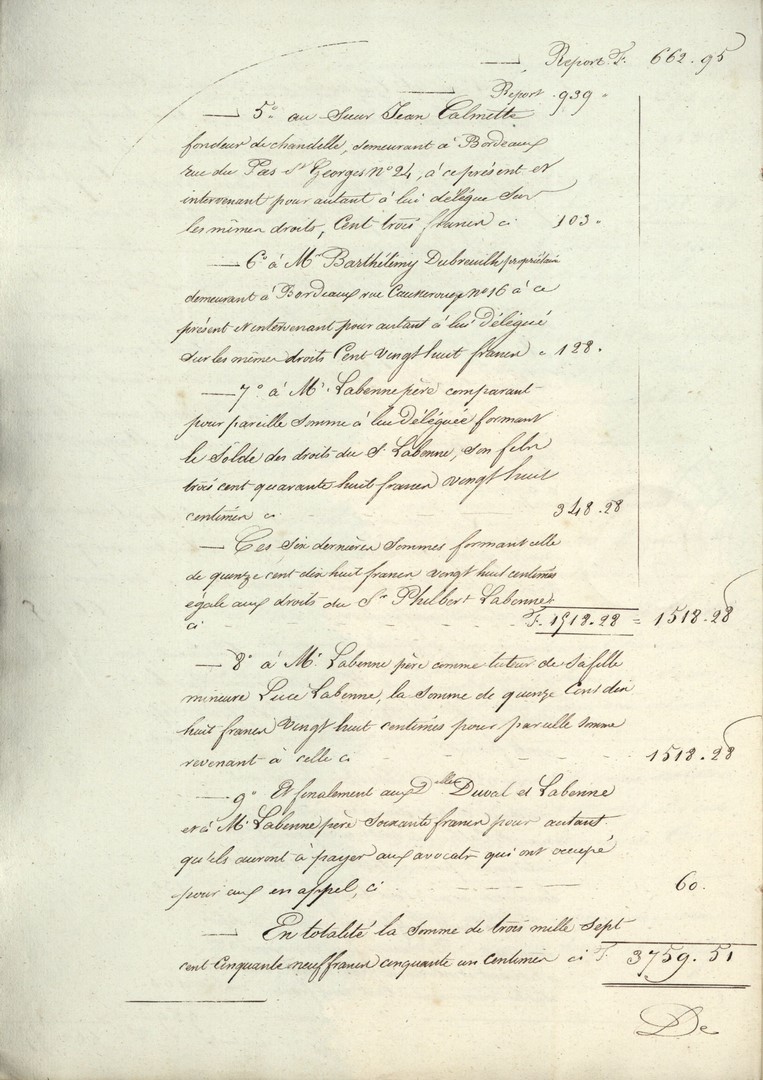 — Report. F. 662.95
— Report 939"
— 5° au Sieur Jean Calmette
fondeur de chandelle, demeurant à Bordeaux
rue du Pas St Georges N° 24, à ce présent et
intervenant pour autant à lui délégué sur
les mêmes droits, Cent trois francs ci 103"
— 6° à Mr Barthélémy Dubreuilh propriétaire
demeurant à Bordeaux rue N° 16 à ce
présent et intervenant pour autant à lui Délégué
sur les mêmes droits Cent vingt huit francs c 128.
— 7° à Mr. Labenne père comparant
pour pareille somme à lui Déléguée formant
le solde des droits du S. Labenne, son fils
trois cent quarante huit francs vingt huit
centimes ci 348.28
— Ces six dernières sommes formant celle
de quinze cent dix huit francs vingt huit centimes
égale aux droits du Sr Philbert Labenne
ci F. 1518.28 = 1518.28
— 8° à Mr. Labenne père comme tuteur de sa fille
mineure Luce Labenne, la somme de quinze Cent dix
huit francs vingt huit centimes pour pareille somme
revenant à celle ci 1518.28
— 9° Et finalement aux Dlles Duval et Labenne
et à Mr Labenne père Soixante francs pour autant
qu'ils auront à payer aux avocats qui ont occupé
pour eux en appel, ci 60.
— En totalité la somme de trois mille sept
cent Cinquante neuf francs cinquante un Centimes ci F. 3759.51
De